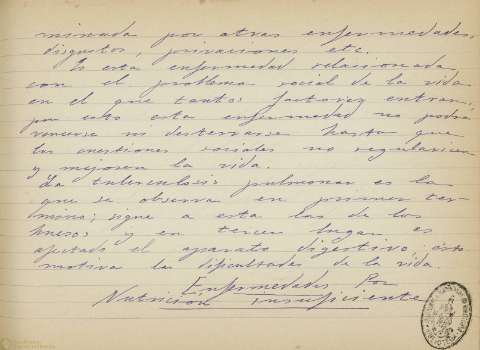 minada por otras enfermedades,
disgustos, privaciones etc.
Es esta enfermedad relacionada
con el problema social de la vida
en el que tantos factores entran,
por esto esta enfermedad no podra
vencerse ni desterrarse hasta que
las cuestiones sociales no regularicen
y mejoren la vida.
La tuberculosis pulmonar es la
que se observa en primer ter-
mino; sigue a esta las de los
huesos y en tercer lugar es
afectado el aparato digestivo esto
motiva las dificultades de la vida.
Enfermedades Por
Nutricion insuficiente